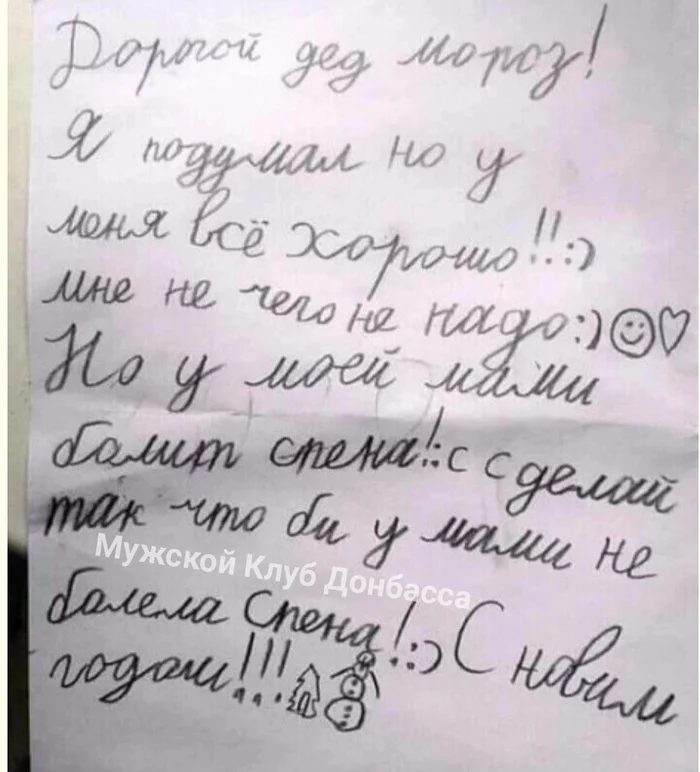 Дорогой дед мороз!
Я подумал но у
меня всё хорошо!!:)
мне не чего не надо:)☺♡
Но у моей мами
балит спена!:с сделай
так что би у мами не
Мужской Клуб Донбасса
балела Спена!:) С новим
годом!!!